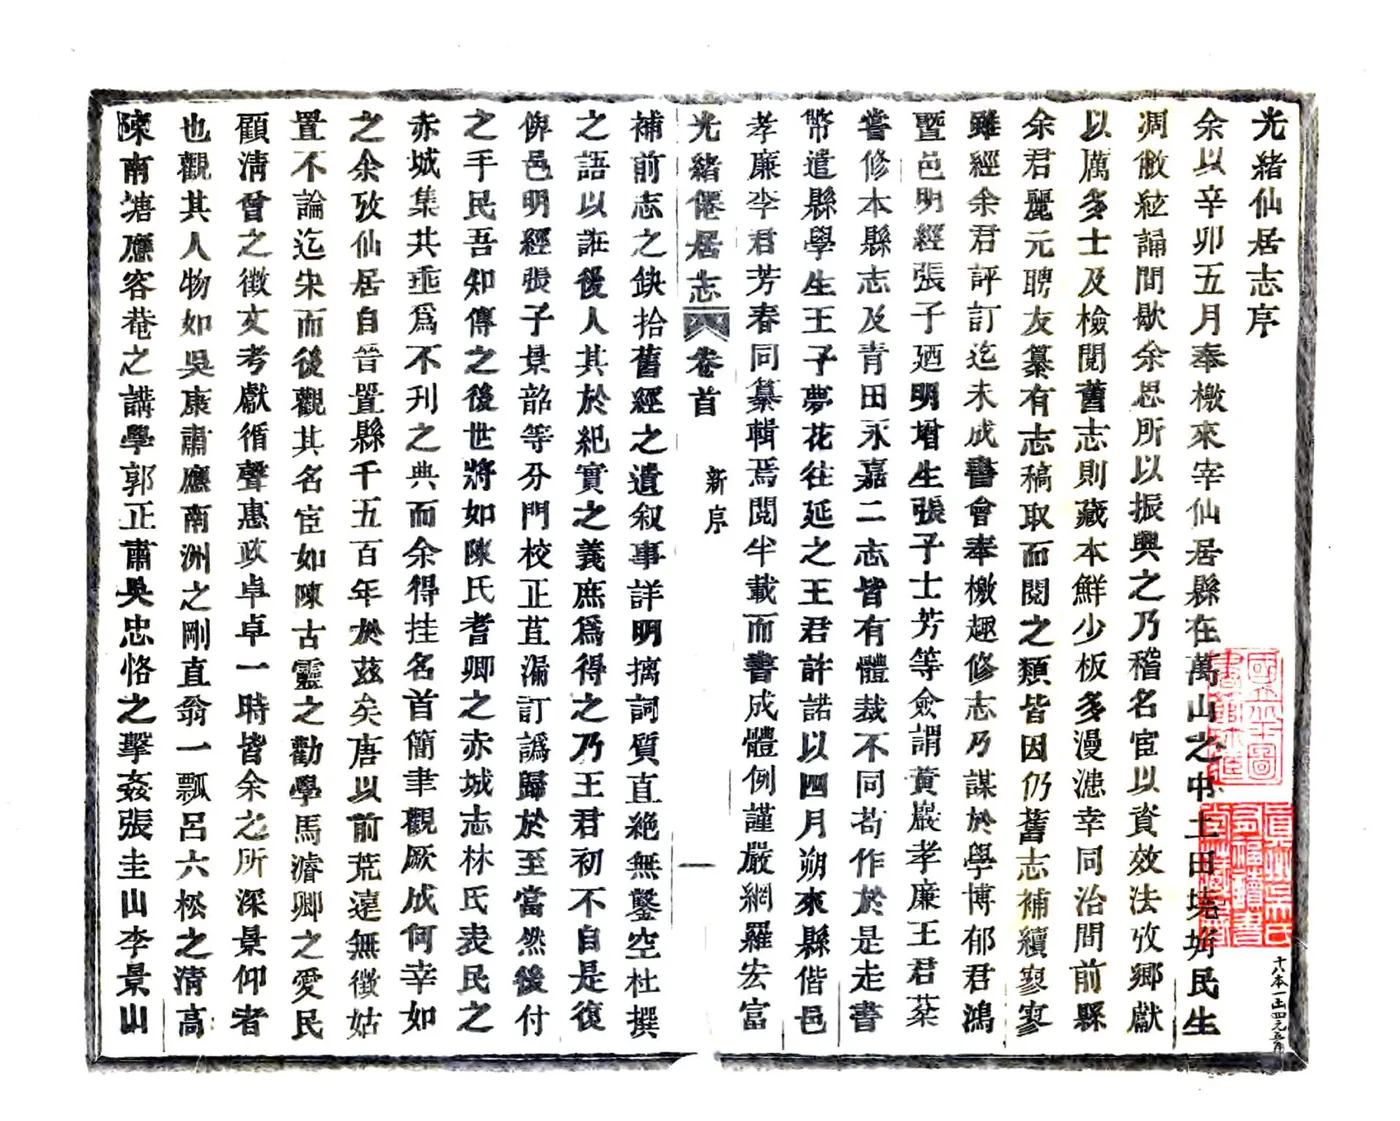 光緒仙居志序
余以辛卯五月奉檄來宰仙居縣在萬山之中土田墝埆民生
凋敝絃誦間歇余思所以振興之乃稽名宦以資效法攷鄉獻
以厲多士及檢閱舊志則藏本鮮少板多漫漶幸同治間前縣
余君麗元聘友纂有志稿取而閱之類皆因仍舊志補續寥寥
雖經余君評訂迄未成書會奉檄趣修志乃謀於學博郁君鴻
暨邑明經張子廼明增生張子士芳等僉謂黃巖孝廉王君棻
嘗修本縣志及青田永嘉二志皆有體裁不同苟作於是走書
幣遣縣學生王子夢花往延之王君許諾以四月朔來縣偕邑
孝廉李君芳春同纂輯焉閱半載而書成體例謹嚴網羅宏富
光緒僊居志 卷首 新序 一
補前志之缺拾舊經之遺叙事詳明摛詞質直絕無鑿空杜撰
之語以誑後人其於紀實之義庶爲得之乃王君初不自是復
俾邑明經張子景韶等分門校正苴漏訂譌歸於至當然後付
之手民吾知傳之後世將如陳氏耆卿之赤城志林氏表民之
赤城集共垂爲不刋之典而余得挂名首簡聿觀厥成何幸如
之余攷仙居自晉置縣千五百年於茲矣唐以前荒遠無徵姑
置不論迄宋而後觀其名宦如陳古靈之勸學馬濬卿之愛民
顧淸曾之徵文考獻循聲惠政卓卓一時皆余之所深景仰者
也觀其人物如吳康肅應南洲之剛直翁一瓢呂六松之淸高
陳南塘應容菴之講學郭正肅吳忠恪之擊姦張圭山李景山
十八本一函四元五角